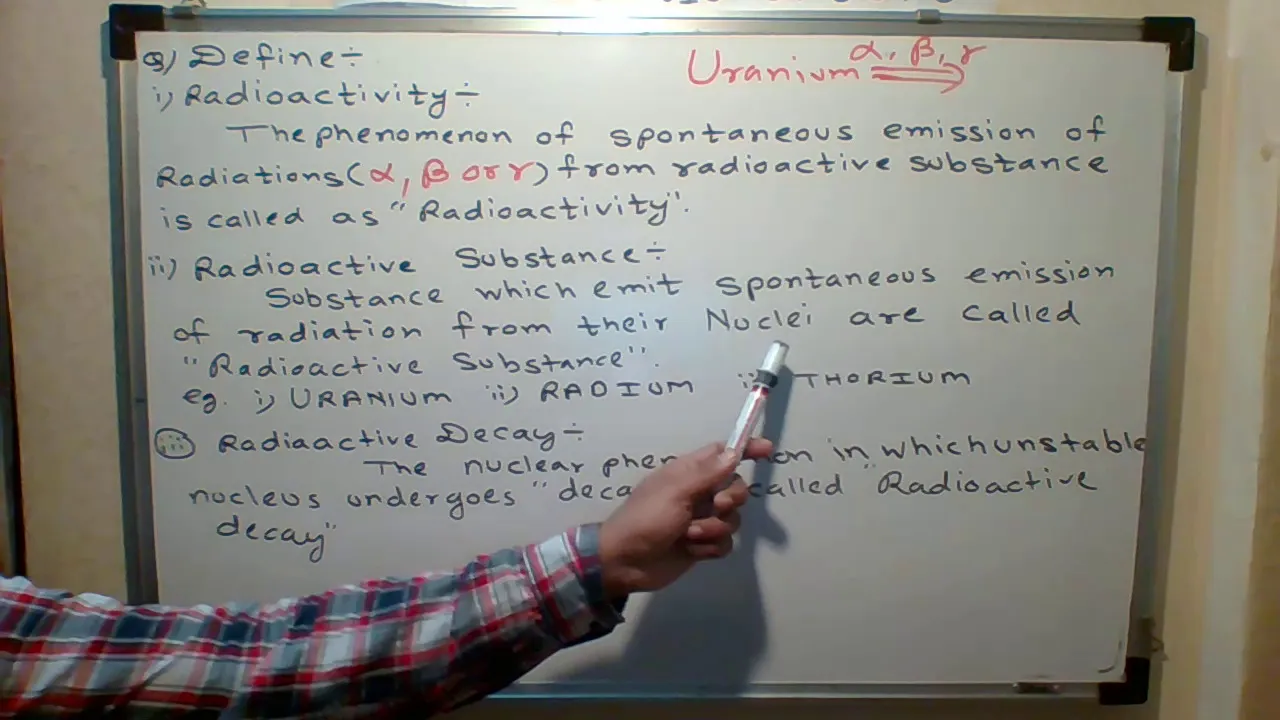 Q) Define÷
Uranium α, β, γ ⇒
i) Radioactivity÷
The phenomenon of spontaneous emission of
Radiations (α, β or γ) from radioactive substance
is called as "Radioactivity".
ii) Radioactive Substance÷
Substance which emit spontaneous emission
of radiation from their Nuclei are called
"Radioactive Substance".
eg. i) URANIUM ii) RADIUM THORIUM
iii) Radiaactive Decay÷
The nuclear in which unstable
nucleus undergoes " called "Radioactive
decay"